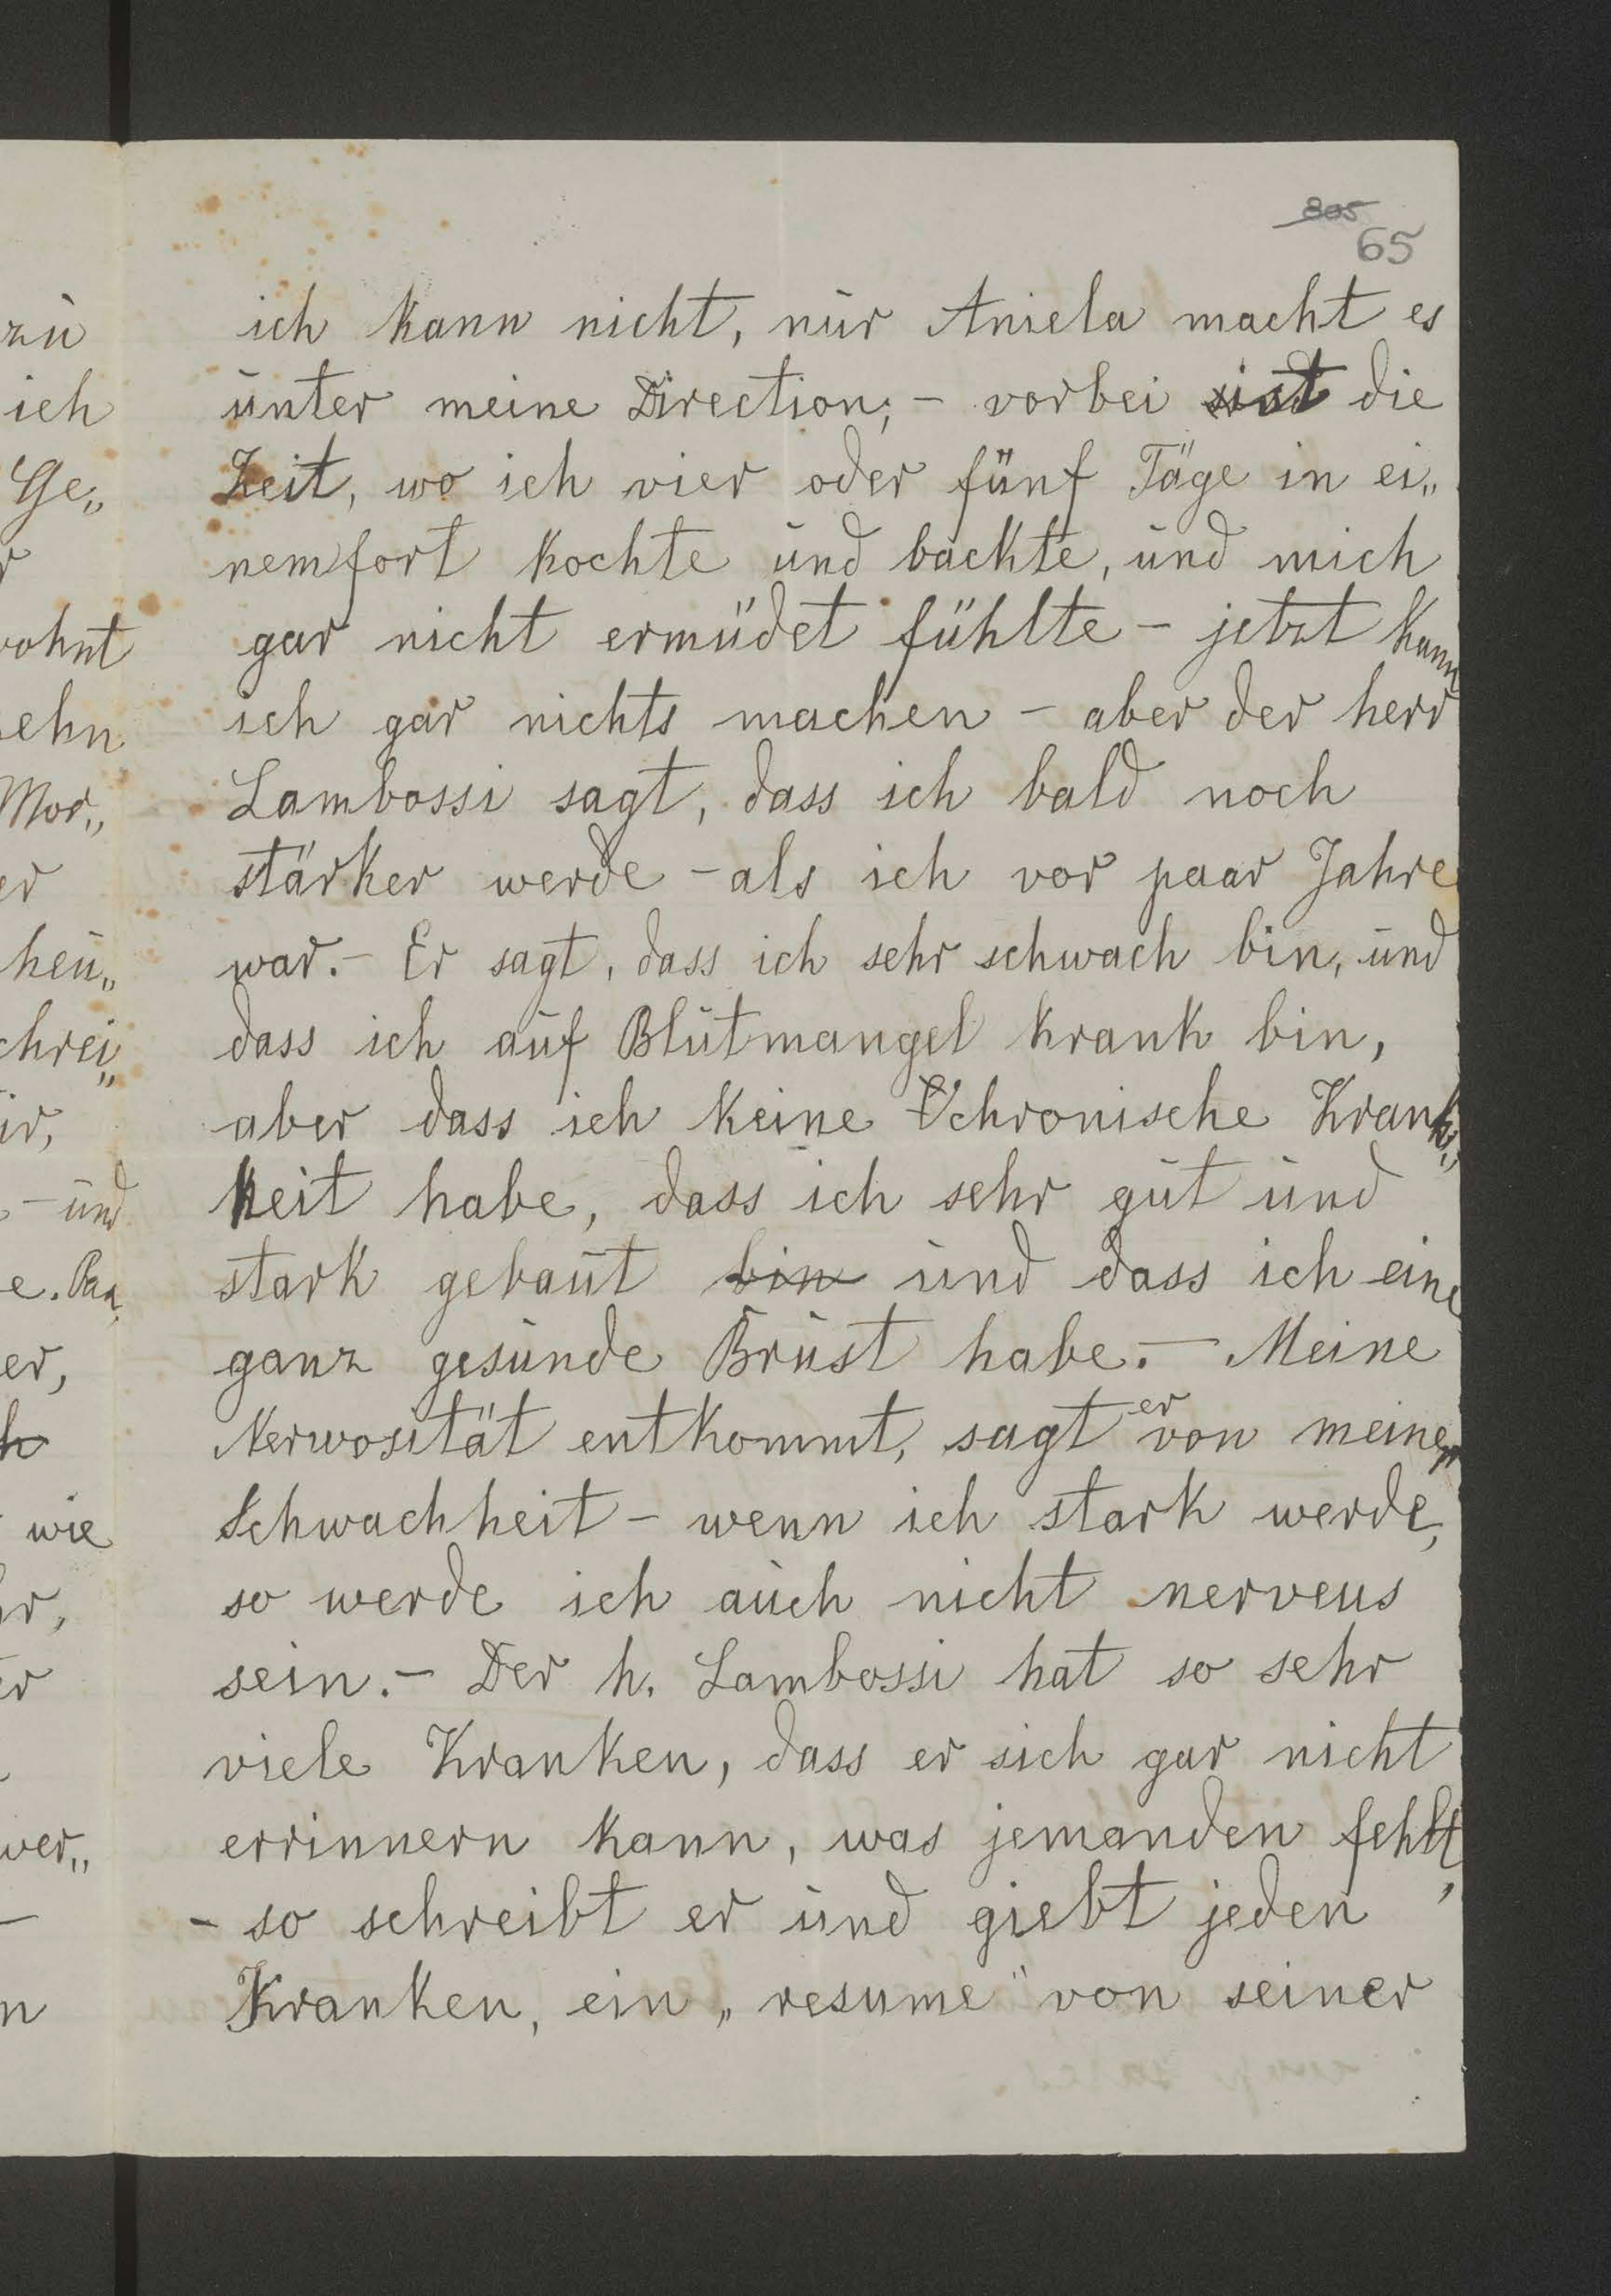 805
65
ich kann nicht, nur Aniela macht es
unter meine Direction; - vorbei ist die
Zeit, wo ich vier oder fünf Täge in ei„
nemfort kochte und backte, und mich
gar nicht ermüdet fühlte - jetzt kann
ich gar nichts machen - aber der herr
Lambossi sagt, dass ich bald noch
stärker werde - als ich vor paar Jahre
war. - Er sagt, dass ich sehr schwach bin, und
dass ich auf Blutmangel krank bin,
aber dass ich keine chronische Krank„
heit habe, dass ich sehr gut und
stark gebaut bin und dass ich eine
ganz gesunde Brust habe. - Meine
Nerwosität entkommt, sagt er von meine„
Schwachheit - wenn ich stark werde,
so werde ich auch nicht nerveus
sein. - Der h. Lambossi hat so sehr
viele Kranken, dass er sich gar nicht
errinnern kann, was jemanden fehlt,
- so schreibt er und giebt jeden
Kranken, ein „resume" von seiner
zu
ich
Ge„
r
wohnt
ehn
Mor„
er
heu„
chrei„
ir,
- und
e. Paa
er,
h
wie
hr,
er
ver„
-
n